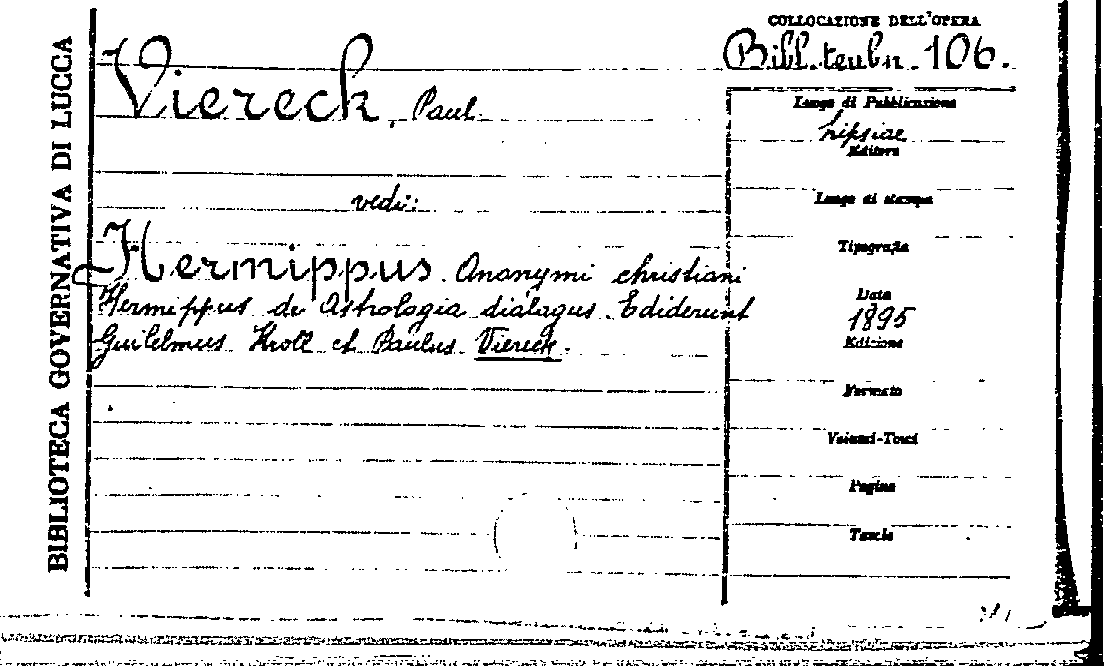 BIBLIOTECA GOVERNATIVA DI LUCCA
COLLOCAZIONE DELL'OPERA
Bibl. teubn. 106.
Viereck, Paul.
vedi:
Hermippus. Anonymi christiani
Hermippus de Astrologia dialogus. Ediderunt
Guilelmus Kroll et Paulus Viereck.
Luogo di Pubblicazione
Lipsiae
Editore
Luogo di stampa
Tipografia
Data
1895
Edizione
Formato
Volumi-Tomi
Pagine
Tavole